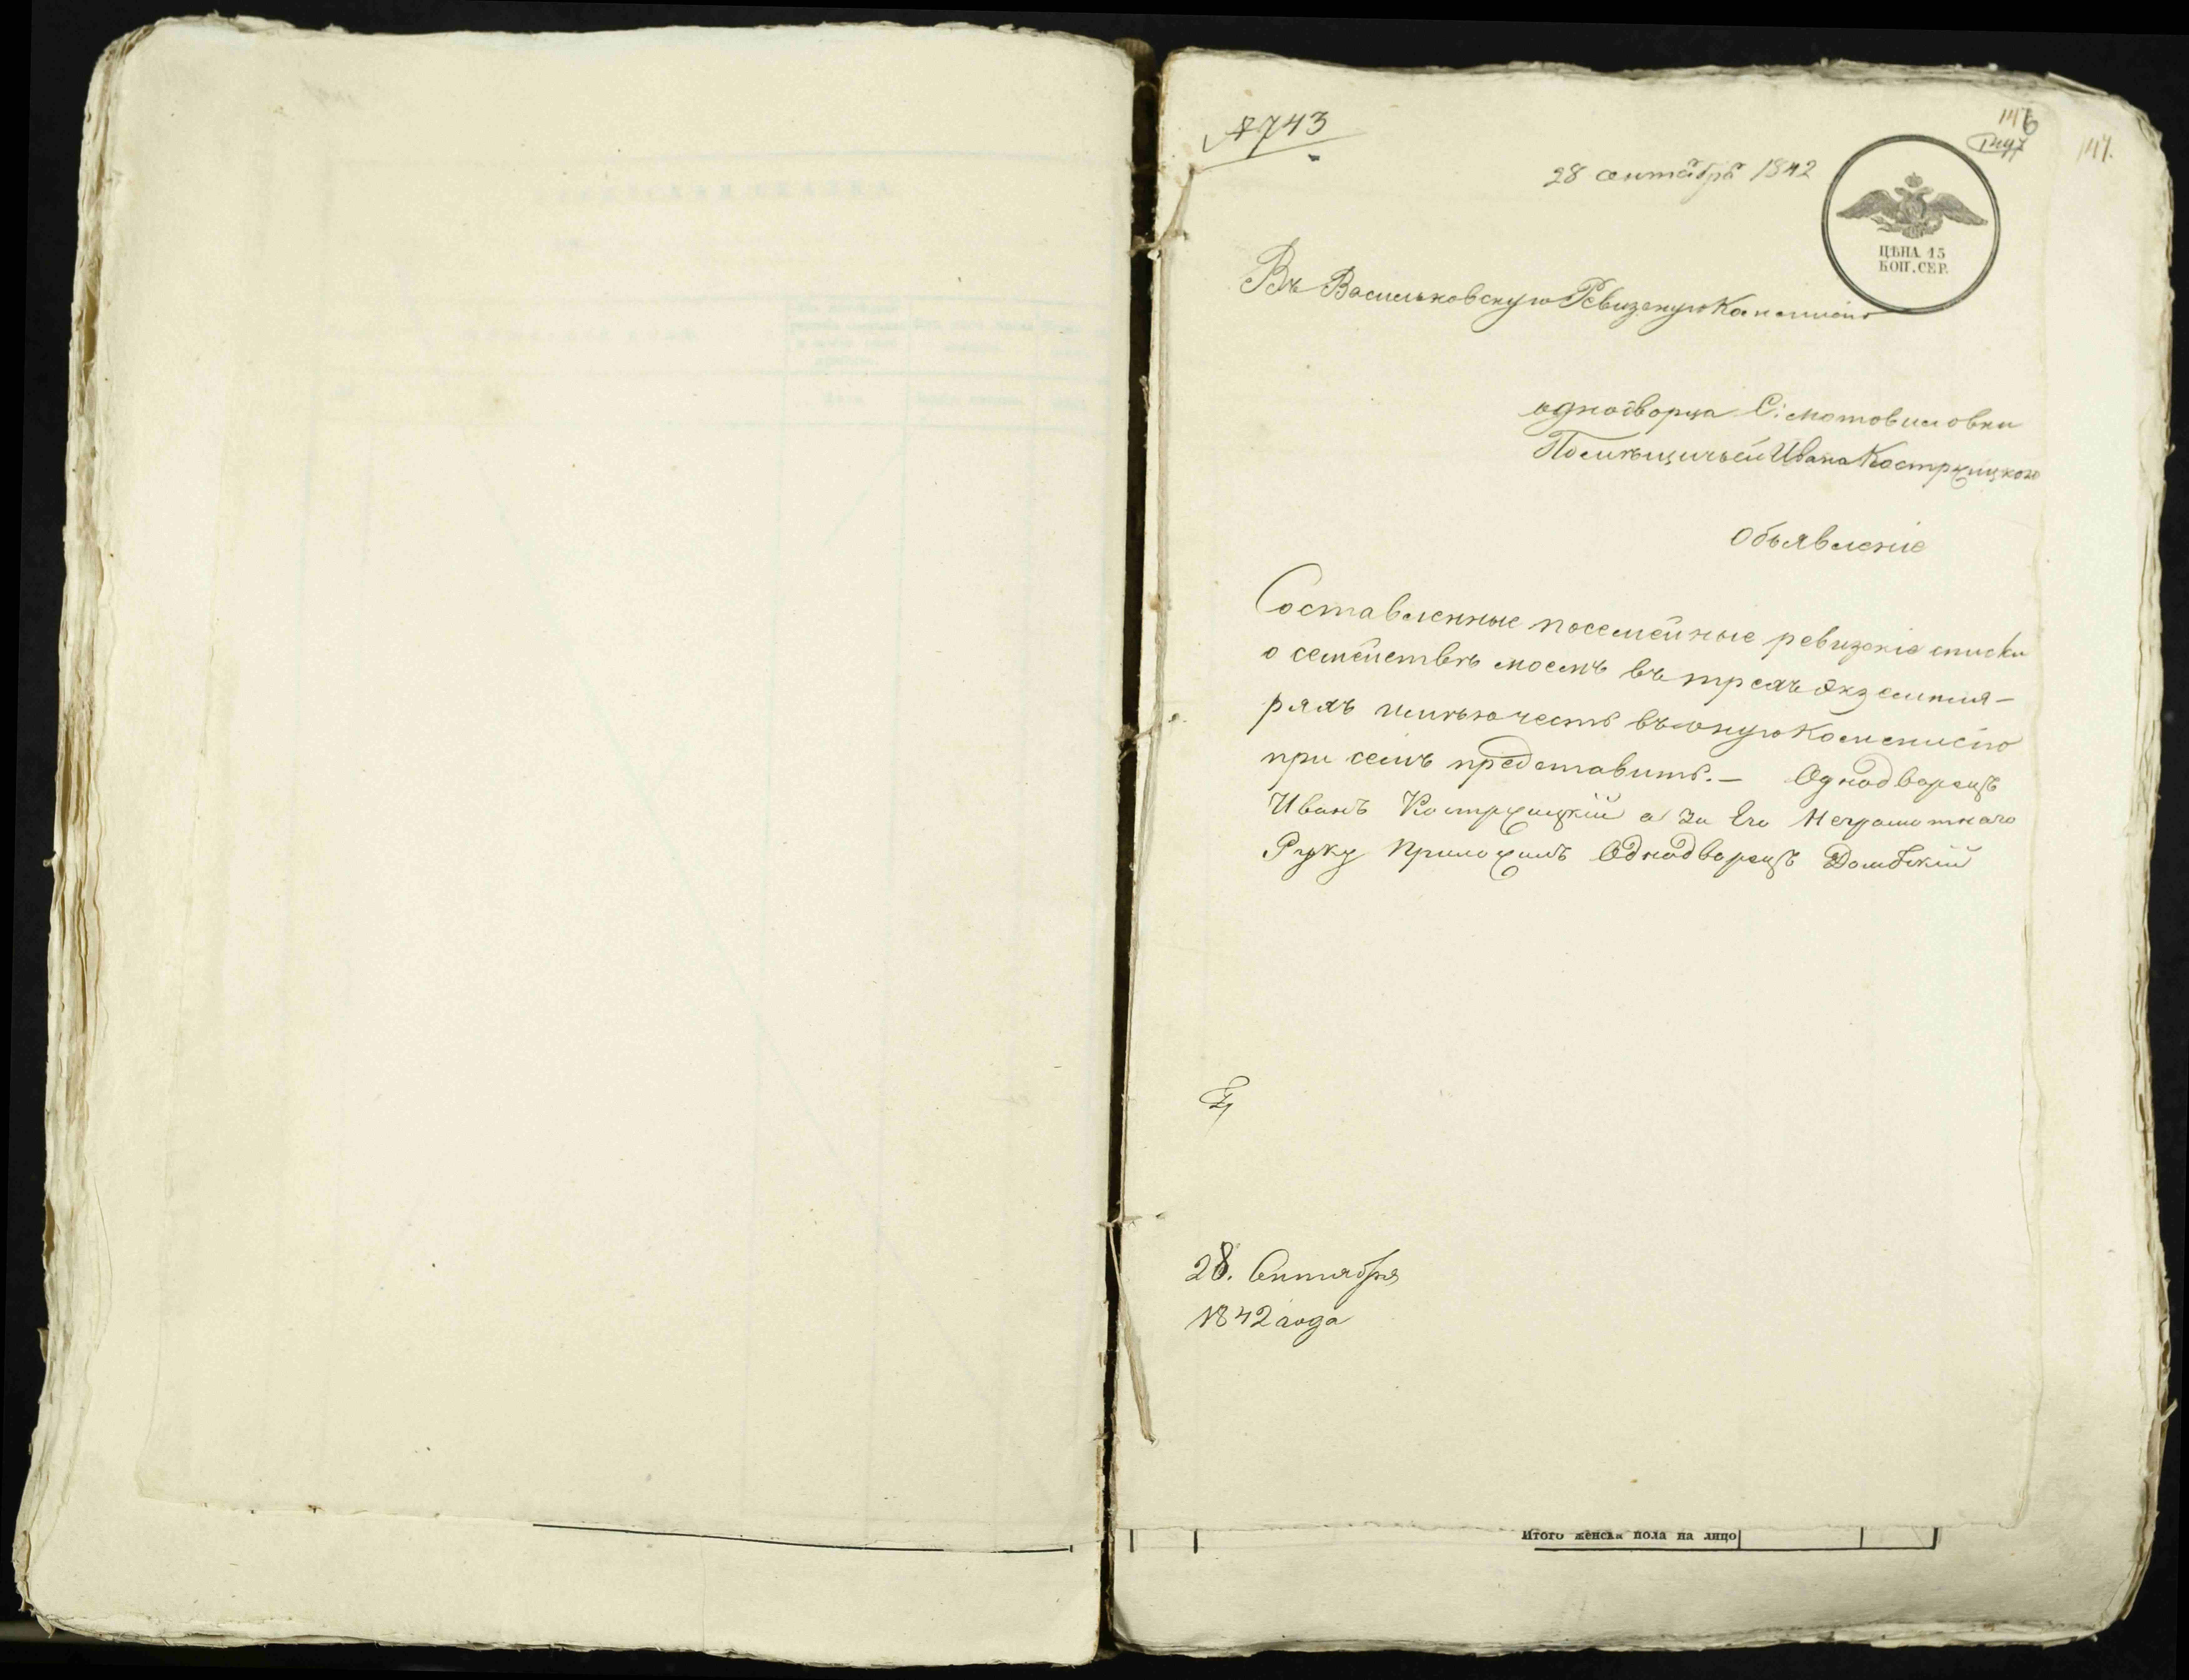 № 743
146
147.
28 сентября 1842
ЦѢНА 15
КОП. СЕР.
Въ Васильковскую Ревизскую Коммисію
однодворца С: Мотовиловки
Помѣщичьей Ивана Костржицкого
Объявленіе
Составленные посемейные ревизскіе списки
о семействѣ моемъ въ трехъ экземпля-
рахъ имѣю честь въ оную Коммисію
при семъ представить. — Однодворецъ
Иванъ Костржицкій а за Его Неграмотнаго
Руку Приложилъ Однодворецъ Домбскій
28. Сентября
1842 года
Итого женска пола на лицо